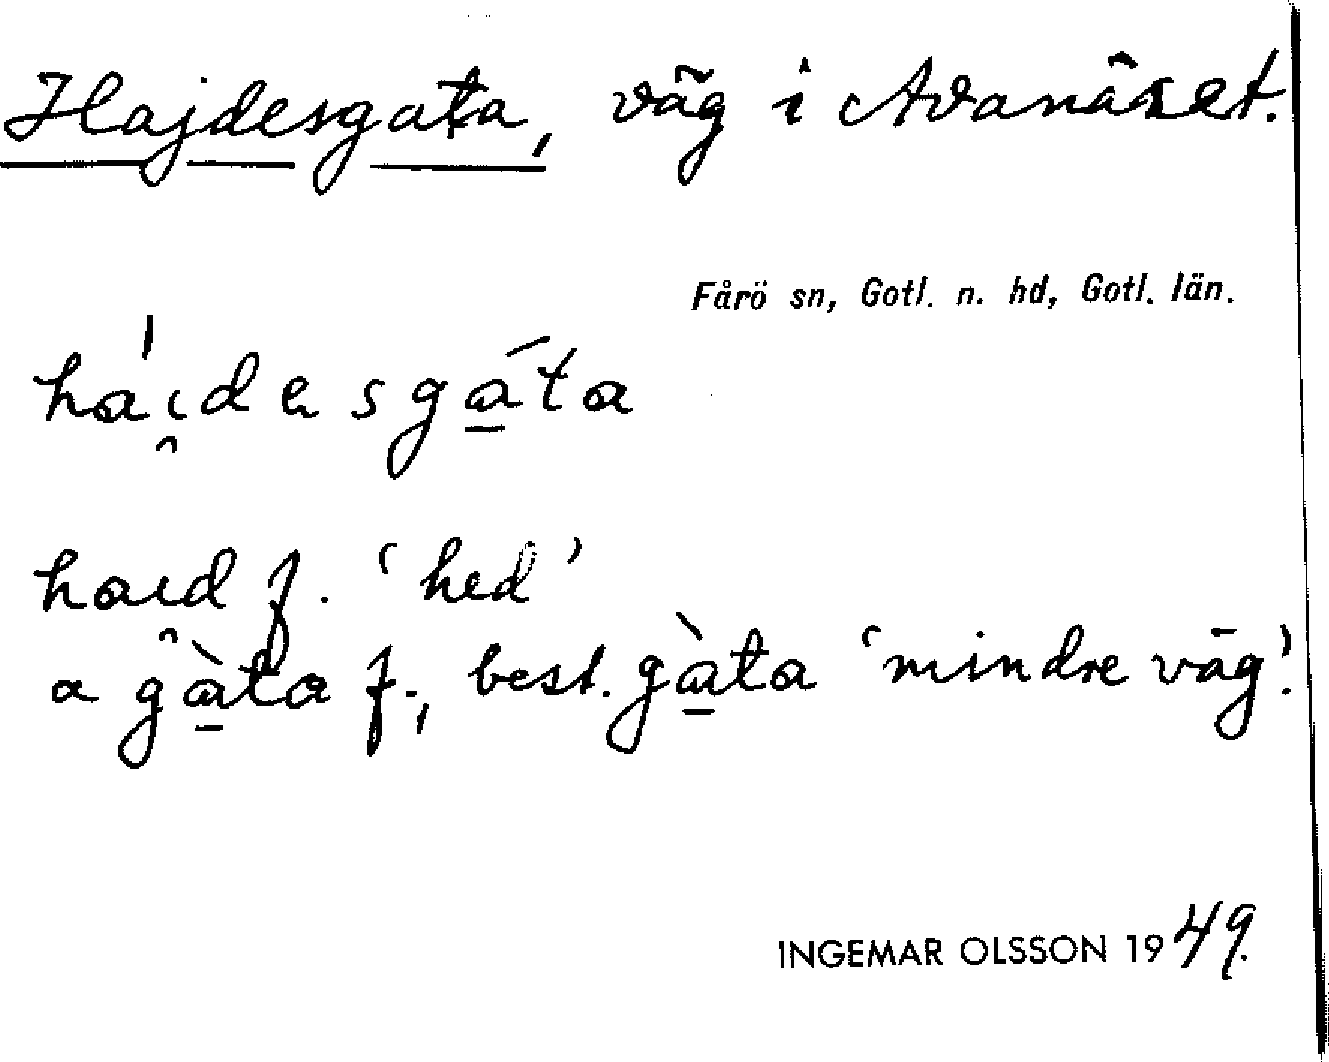 Hajdesgata, väg i Avanäset.
Fårö sn, Gotl. n. hd, Gotl. län.
ha̍ı̯desga̲̍ta
haı̯d f. ‘hed’
a gà̲ta f., best. gà̲ta ‘mindre väg’.
INGEMAR OLSSON 1949.